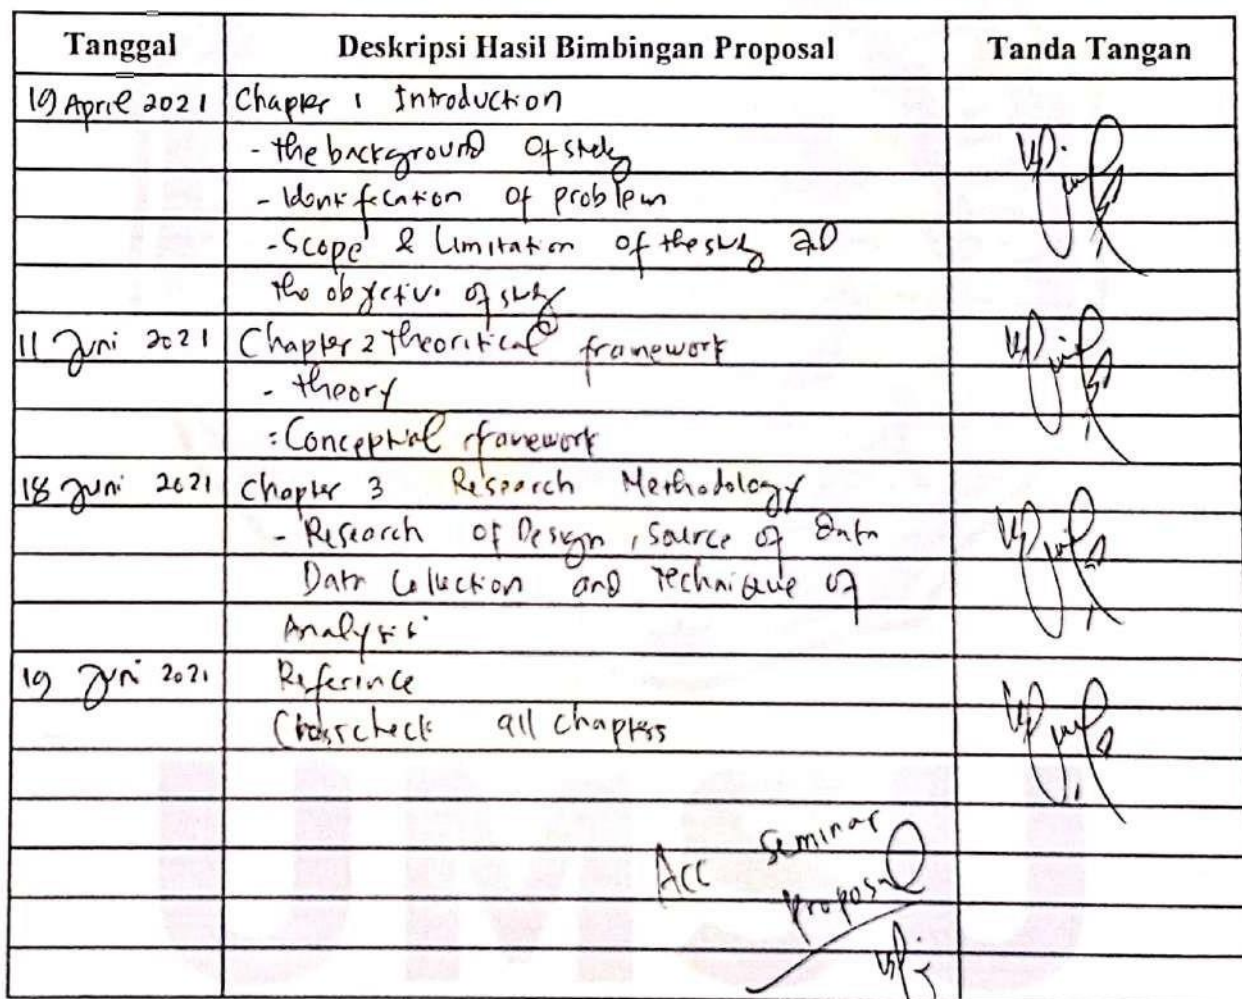 Tanggal Deskripsi Hasil Bimbingan Proposal Tanda Tangan
19 April 2021 Chapter 1 Introduction
- the background of study
- Identification of problem
- Scope & Limitation of the study and
the objective of study
11 Juni 2021 Chapter 2 theoritical framework
- theory
- Conceptual framework
18 Juni 2021 Chapter 3 Research Methodology
- Research of Design, Source of Data
Data Collection and Technique of
Analysis
19 Juni 2021 Reference
Crosscheck all chapters
Acc seminar
proposal
UMSU